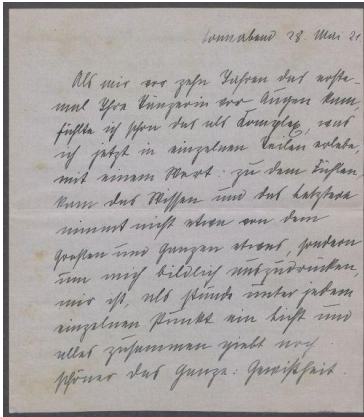 Sonnabend 28. Mai 21
Als mir vor zehn Jahren das erste-
mal Ihre Tänzerin vor Augen kam,
fühlte ich schon das als Complex, was
ich jetzt in einzelnen Teilen erlebe,
mit einem Wort: zu dem Fühlen
kam das Wissen und das Letztere
nimmt nicht etwa von dem
Großen und Ganzen etwas, sondern
um mich bildlich auszudrücken,
mir ist, als stünde unter jedem
einzelnen Punkt ein Licht und
alles zusammen giebt noch
schöner das Ganze: Gewißheit.